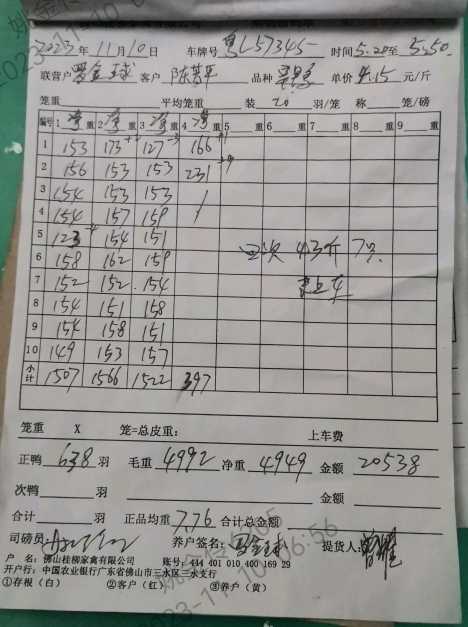 2023年11月10日 车牌号 粤L57345 时间5.20至5.50
联营户 罗金球 客户 陈 平 品种 单价 4.15 元/斤
笼重 平均笼重 装 20 羽/笼 称 笼/磅
编号 1 重 2 重 3 重 4 重 5 重 6 重 7 重 8 重 9 重
1 153 173 127 166
2 156 153 153 231
3 154 153 153
4 154 157 159
5 123 154 151 二次 43斤 7只
6 158 162 159
7 152 152 154
8 154 151 158
9 154 158 151
10 149 153 157
小计 1507 1566 1522 397
笼重 X 笼=总皮重: 上车费
正鸭 638 羽 毛重 4992 净重 4949 金额 20538
次鸭 羽 金额
合计 羽 正品均重 7.76 合计总金额
司磅员: 养户签名: 罗金球 提货人:
户 名: 佛山桂柳家禽有限公司 账号: 444 401 010 400 169 29
开户行: 中国农业银行广东省佛山市三水区三水支行
①存根(白) ②客户(红) ③养户(黄)